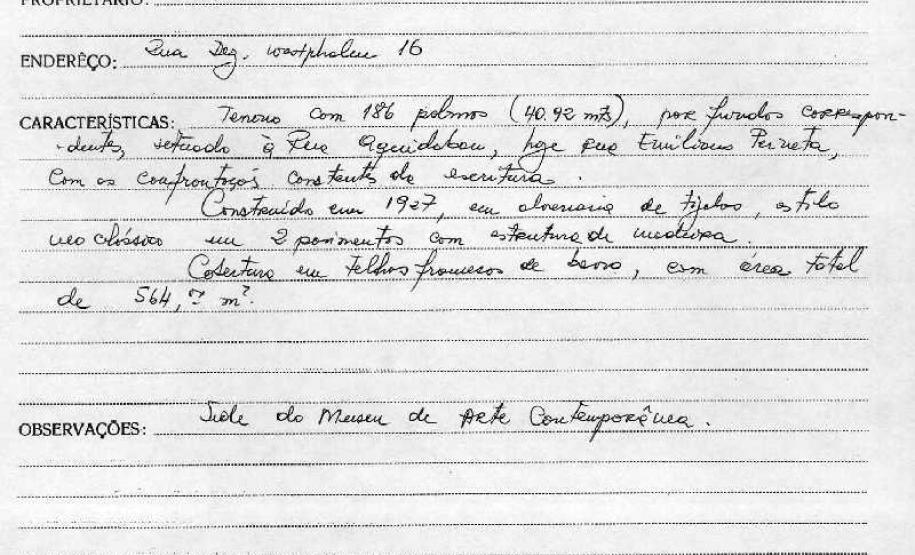 PROPRIETARIO:
ENDERÊÇO: Rua Dez. westphalen 16
CARACTERÍSTICAS: Terreno com 186 palmos (40.92 mts), por fundos correspon-
dentes, situado à Rua Aquidaban, hoje Rua Emiliano Perneta,
com as confrontações constantes da escritura.
Construído em 1927, em alvenaria de tijolos, estilo
neo clássico em 2 pavimentos com estrutura de madeira.
Cobertura em telhas francesas de barro, com área total
de 564, m².
OBSERVAÇÕES: Sede do Museu de Arte Contemporânea.